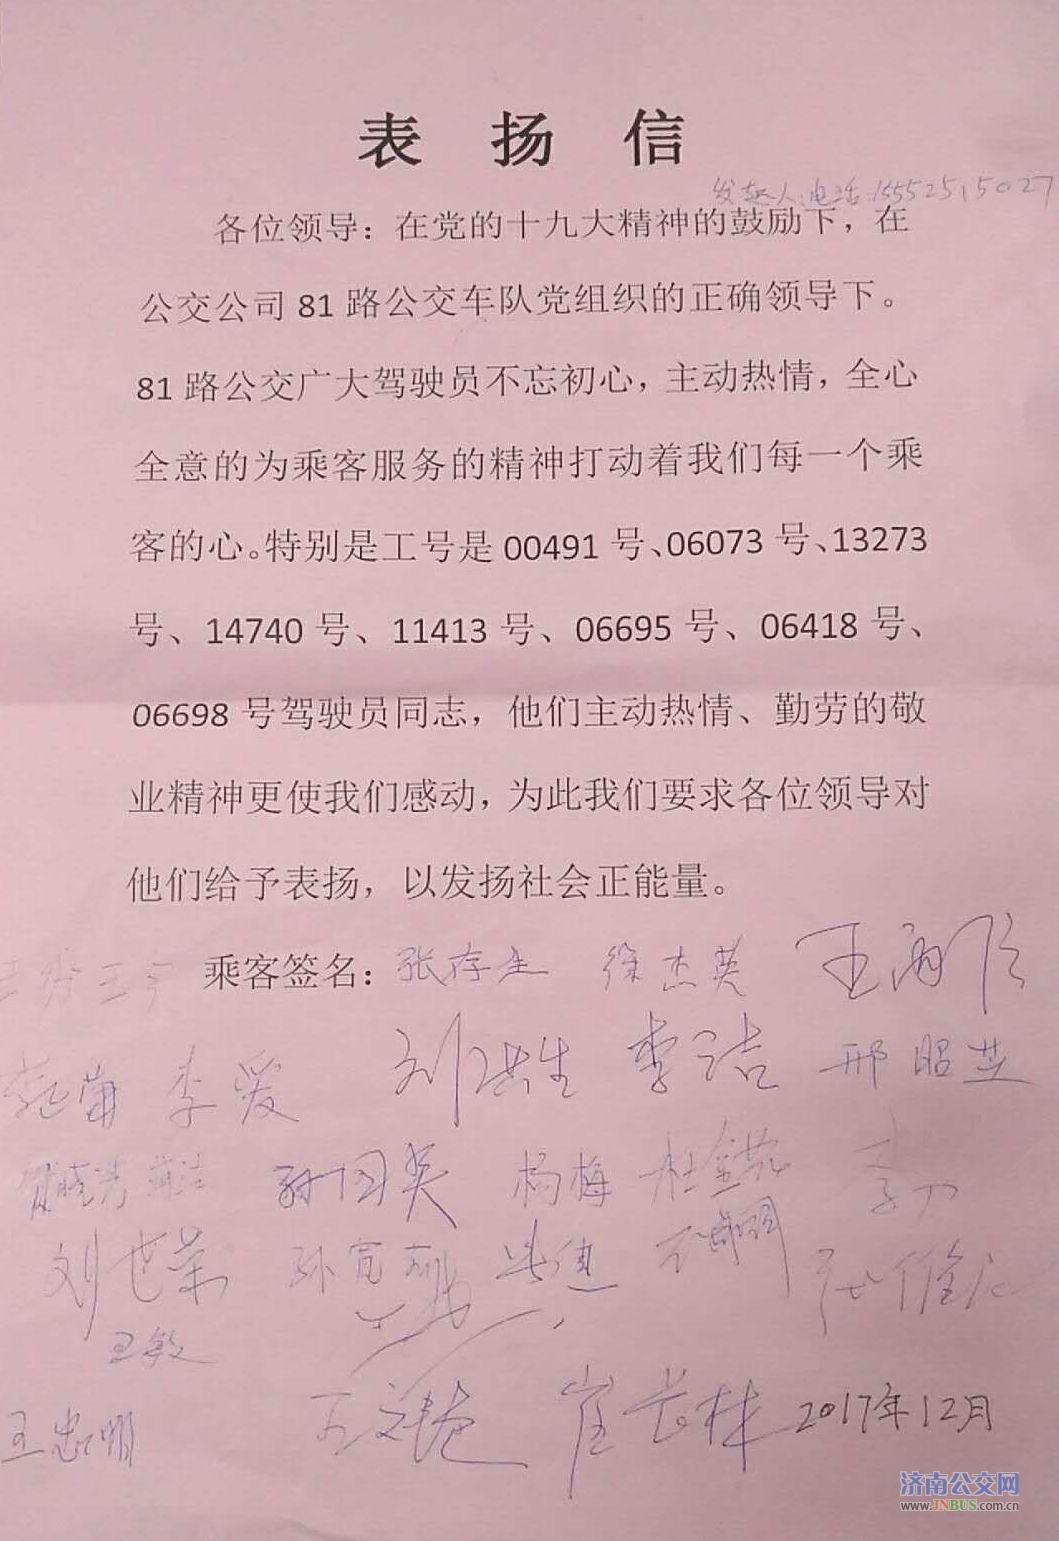 表 扬 信
发起人:电话:15552515027
各位领导：在党的十九大精神的鼓励下，在
公交公司 81 路公交车队党组织的正确领导下。
81 路公交广大驾驶员不忘初心，主动热情，全心
全意的为乘客服务的精神打动着我们每一个乘
客的心。特别是工号是 00491 号、06073 号、13273
号、14740 号、11413 号、06695 号、06418 号、
06698 号驾驶员同志，他们主动热情、勤劳的敬
业精神更使我们感动，为此我们要求各位领导对
他们给予表扬，以发扬社会正能量。
乘客签名：张存生 徐杰英
李爱 刘洪生 李洁 邢昭芝
孙国英 杨梅
刘世荣
王敏
王忠明 崔长林 2017年12月
济南公交网
www.JNBUS.com.cn